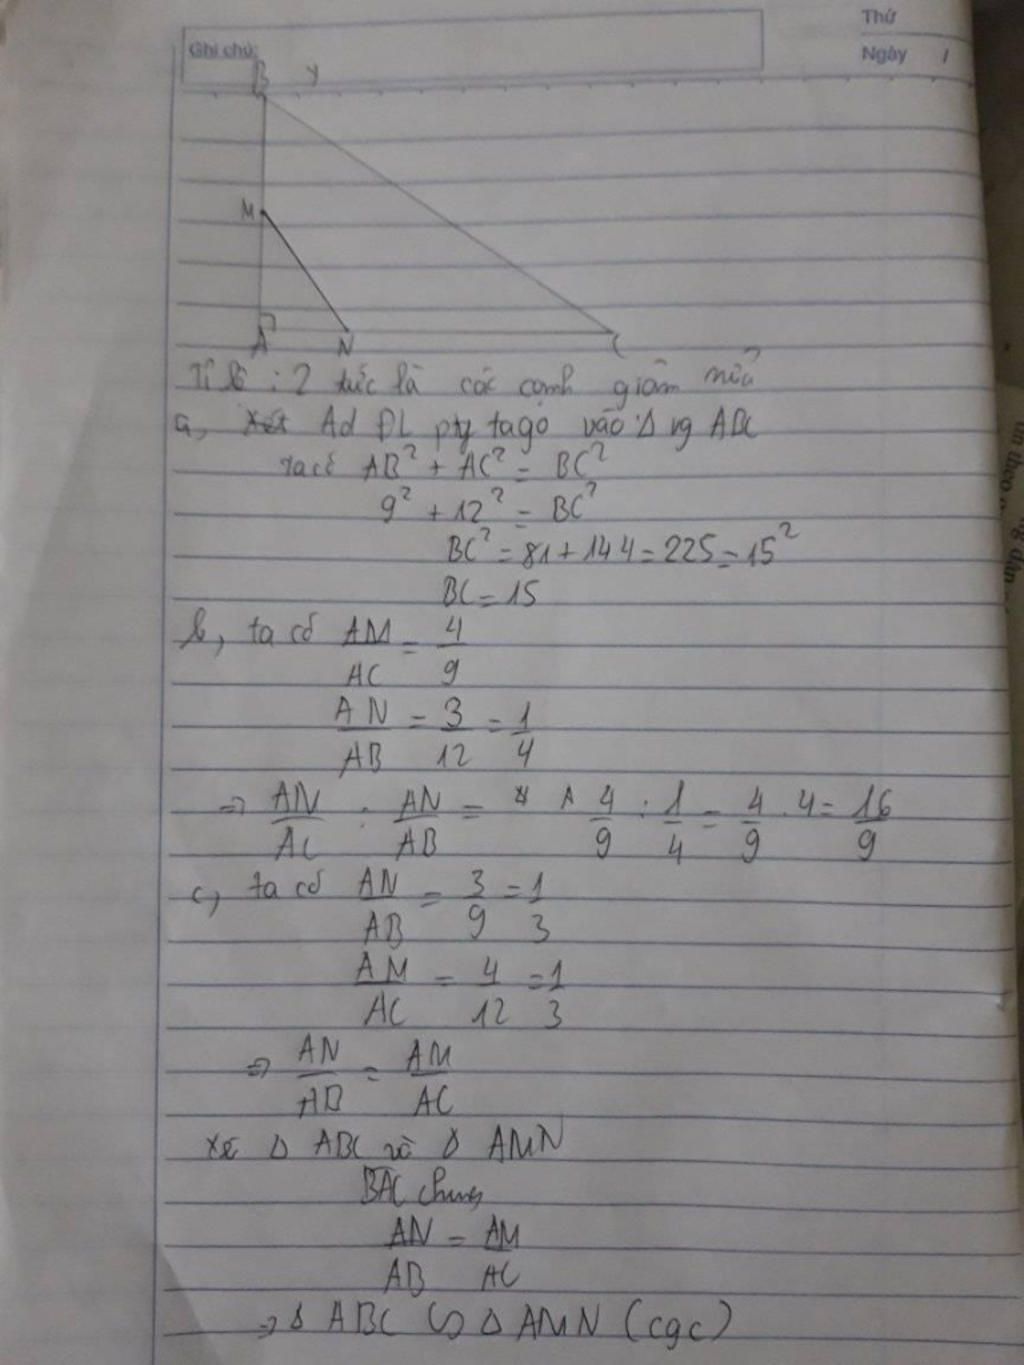 Thứ
Ghi chú:
Ngày /
B y
M
A N C
Tỉ lệ : 2 tức là các cạnh giảm nửa
a, Ad ĐL pty tago vào Δ vg ABC
ta có AB² + AC² = BC²
9² + 12² = BC²
BC² = 81 + 144 = 225 = 15²
BC = 15
b, ta có AM/AC = 4/9
AN/AB = 3/12 = 1/4
=> AN/AC : AN/AB = 4/9 : 1/4 = 4/9 . 4 = 16/9
c, ta có AN/AB = 3/9 = 1/3
AM/AC = 4/12 = 1/3
=> AN/AB = AM/AC
Xét Δ ABC và Δ AMN
BAC chung
AN/AB = AM/AC
=> Δ ABC ∽ Δ AMN (cgc)